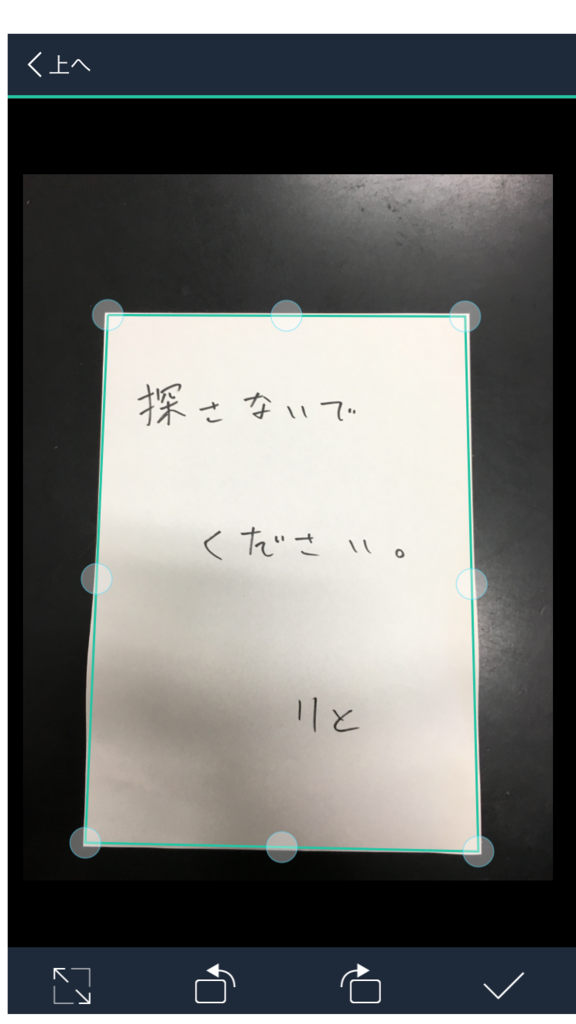 上へ
探さないで
ください。
りと